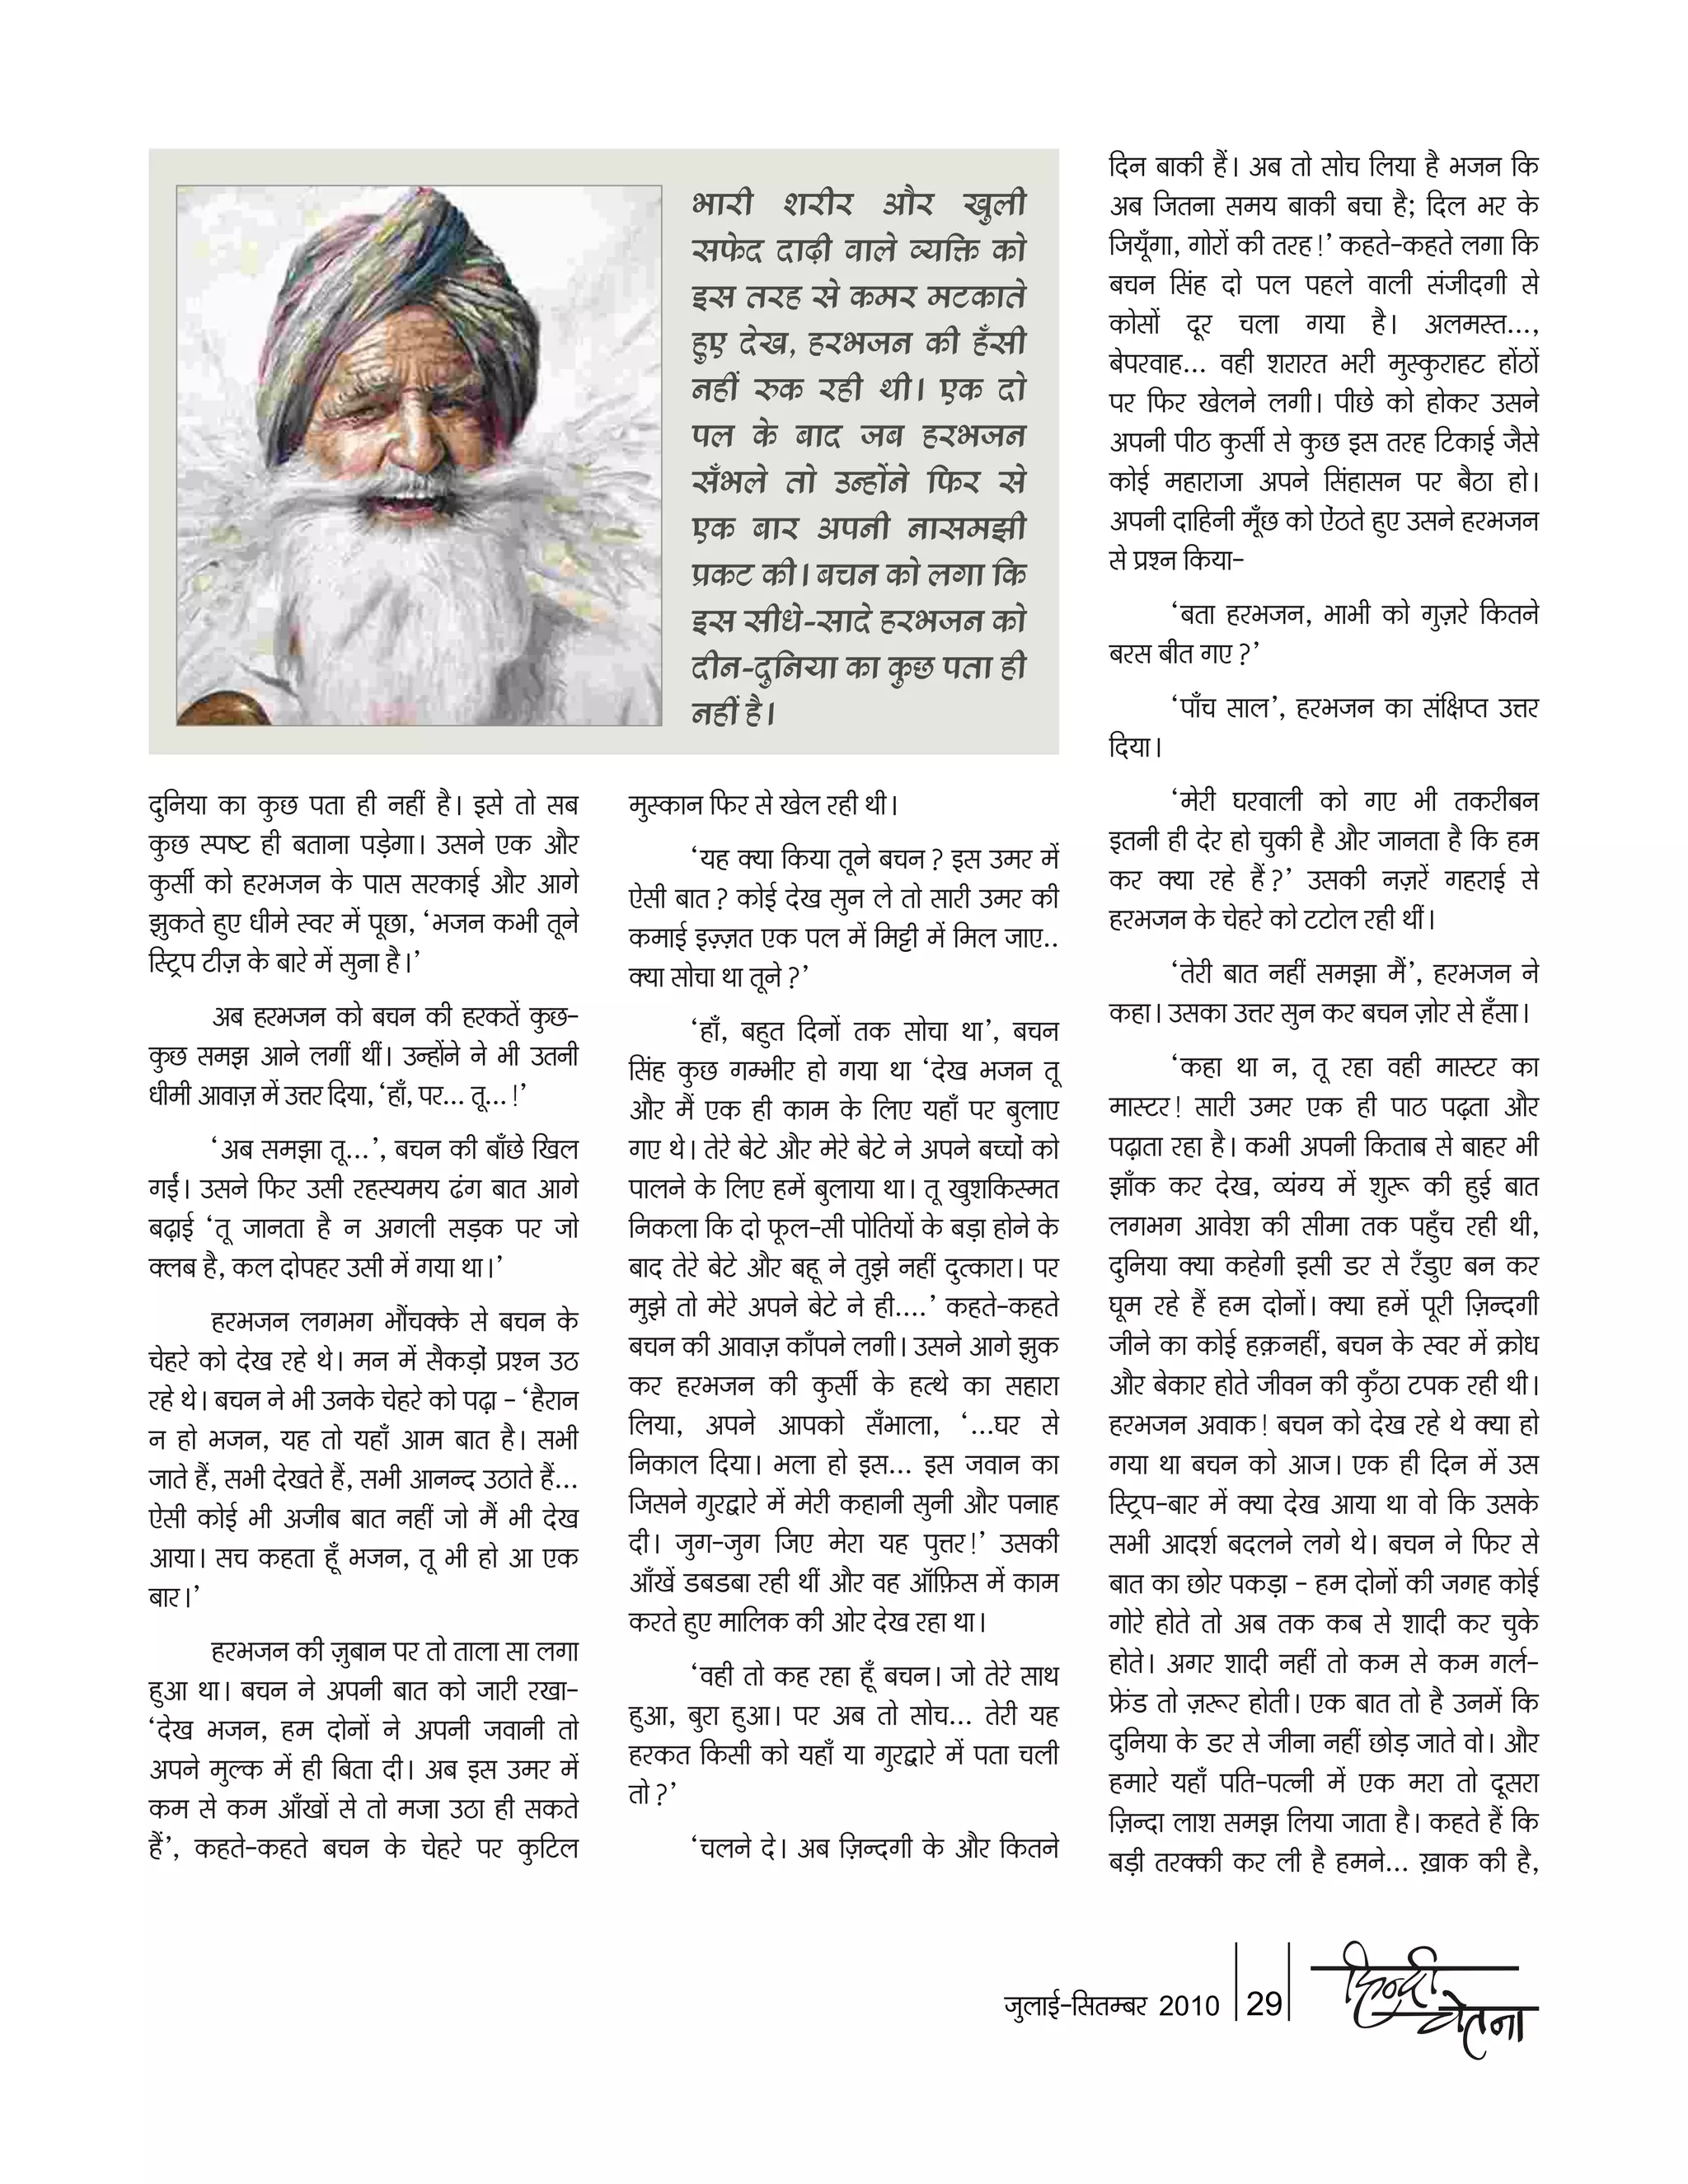 भारी शरीर और खुली
सफेद दाढ़ी वाले व्यक्ति को
इस तरह से कमर मटकाते
हुए देख, हरभजन की हँसी
नहीं रुक रही थी। एक दो
पल के बाद जब हरभजन
सँभले तो उन्होंने फिर से
एक बार अपनी नासमझी
प्रकट की। बचन को लगा कि
इस सीधे-सादे हरभजन को
दीन-दुनिया का कुछ पता ही
नहीं है।
दुनिया का कुछ पता ही नहीं है। इसे तो सब
कुछ स्पष्ट ही बताना पड़ेगा। उसने एक और
कुर्सी को हरभजन के पास सरकाई और आगे
झुकते हुए धीमे स्वर में पूछा, ‘भजन कभी तूने
स्ट्रिप टीज़ के बारे में सुना है।’
अब हरभजन को बचन की हरकतें कुछ-
कुछ समझ आने लगीं थीं। उन्होंने ने भी उतनी
धीमी आवाज़ में उत्तर दिया, ‘हाँ, पर... तू...!’
‘अब समझा तू...’, बचन की बाँछे खिल
गईं। उसने फिर उसी रहस्यमय ढंग बात आगे
बढ़ाई ‘तू जानता है न अगली सड़क पर जो
क्लब है, कल दोपहर उसी में गया था।’
हरभजन लगभग भौंचक्के से बचन के
चेहरे को देख रहे थे। मन में सैकड़ों प्रश्न उठ
रहे थे। बचन ने भी उनके चेहरे को पढ़ा - ‘हैरान
न हो भजन, यह तो यहाँ आम बात है। सभी
जाते हैं, सभी देखते हैं, सभी आनन्द उठाते हैं...
ऐसी कोई भी अजीब बात नहीं जो मैं भी देख
आया। सच कहता हूँ भजन, तू भी हो आ एक
बार।’
हरभजन की ज़ुबान पर तो ताला सा लगा
हुआ था। बचन ने अपनी बात को जारी रखा-
‘देख भजन, हम दोनों ने अपनी जवानी तो
अपने मुल्क में ही बिता दी। अब इस उमर में
कम से कम आँखों से तो मजा उठा ही सकते
हैं’, कहते-कहते बचन के चेहरे पर कुटिल
मुस्कान फिर से खेल रही थी।
‘यह क्या किया तूने बचन? इस उमर में
ऐसी बात? कोई देख सुन ले तो सारी उमर की
कमाई इज़्ज़त एक पल में मिट्टी में मिल जाए..
क्या सोचा था तूने?’
‘हाँ, बहुत दिनों तक सोचा था’, बचन
सिंह कुछ गम्भीर हो गया था ‘देख भजन तू
और मैं एक ही काम के लिए यहाँ पर बुलाए
गए थे। तेरे बेटे और मेरे बेटे ने अपने बच्चों को
पालने के लिए हमें बुलाया था। तू खुशकिस्मत
निकला कि दो फूल-सी पोतियों के बड़ा होने के
बाद तेरे बेटे और बहू ने तुझे नहीं दुत्कारा। पर
मुझे तो मेरे अपने बेटे ने ही....’ कहते-कहते
बचन की आवाज़ काँपने लगी। उसने आगे झुक
कर हरभजन की कुर्सी के हत्थे का सहारा
लिया, अपने आपको सँभाला, ‘...घर से
निकाल दिया। भला हो इस... इस जवान का
जिसने गुरद्वारे में मेरी कहानी सुनी और पनाह
दी। जुग-जुग जिए मेरा यह पुत्तर!’ उसकी
आँखें डबडबा रही थीं और वह ऑफ़िस में काम
करते हुए मालिक की ओर देख रहा था।
‘वही तो कह रहा हूँ बचन। जो तेरे साथ
हुआ, बुरा हुआ। पर अब तो सोच... तेरी यह
हरकत किसी को यहाँ या गुरद्वारे में पता चली
तो?’
‘चलने दे। अब ज़िन्दगी के और कितने
दिन बाकी हैं। अब तो सोच लिया है भजन कि
अब जितना समय बाकी बचा है; दिल भर के
जियूँगा, गोरों की तरह!’ कहते-कहते लगा कि
बचन सिंह दो पल पहले वाली संजीदगी से
कोसों दूर चला गया है। अलमस्त...,
बेपरवाह... वही शरारत भरी मुस्कुराहट होंठों
पर फिर खेलने लगी। पीछे को होकर उसने
अपनी पीठ कुर्सी से कुछ इस तरह टिकाई जैसे
कोई महाराजा अपने सिंहासन पर बैठा हो।
अपनी दाहिनी मूँछ को ऐंठते हुए उसने हरभजन
से प्रश्न किया-
‘बता हरभजन, भाभी को गुज़रे कितने
बरस बीत गए?’
‘पाँच साल’, हरभजन का संक्षिप्त उत्तर
दिया।
‘मेरी घरवाली को गए भी तकरीबन
इतनी ही देर हो चुकी है और जानता है कि हम
कर क्या रहे हैं?’ उसकी नज़रें गहराई से
हरभजन के चेहरे को टटोल रही थीं।
‘तेरी बात नहीं समझा मैं’, हरभजन ने
कहा। उसका उत्तर सुन कर बचन ज़ोर से हँसा।
‘कहा था न, तू रहा वही मास्टर का
मास्टर! सारी उमर एक ही पाठ पढ़ता और
पढ़ाता रहा है। कभी अपनी किताब से बाहर भी
झाँक कर देख, व्यंग्य में शुरू की हुई बात
लगभग आवेश की सीमा तक पहुँच रही थी,
दुनिया क्या कहेगी इसी डर से रँडुए बन कर
घूम रहे हैं हम दोनों। क्या हमें पूरी ज़िन्दगी
जीने का कोई हक़नहीं, बचन के स्वर में क्रोध
और बेकार होते जीवन की कुँठा टपक रही थी।
हरभजन अवाक! बचन को देख रहे थे क्या हो
गया था बचन को आज। एक ही दिन में उस
स्ट्रिप-बार में क्या देख आया था वो कि उसके
सभी आदर्श बदलने लगे थे। बचन ने फिर से
बात का छोर पकड़ा - हम दोनों की जगह कोई
गोरे होते तो अब तक कब से शादी कर चुके
होते। अगर शादी नहीं तो कम से कम गर्ल-
फ्रेंड तो ज़रूर होती। एक बात तो है उनमें कि
दुनिया के डर से जीना नहीं छोड़ जाते वो। और
हमारे यहाँ पति-पत्नी में एक मरा तो दूसरा
ज़िन्दा लाश समझ लिया जाता है। कहते हैं कि
बड़ी तरक्की कर ली है हमने... ख़ाक की है,
जुलाई-सितम्बर 2010 29
हिन्दी
चेतना